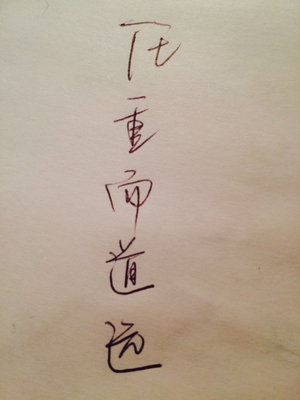 任重而道远